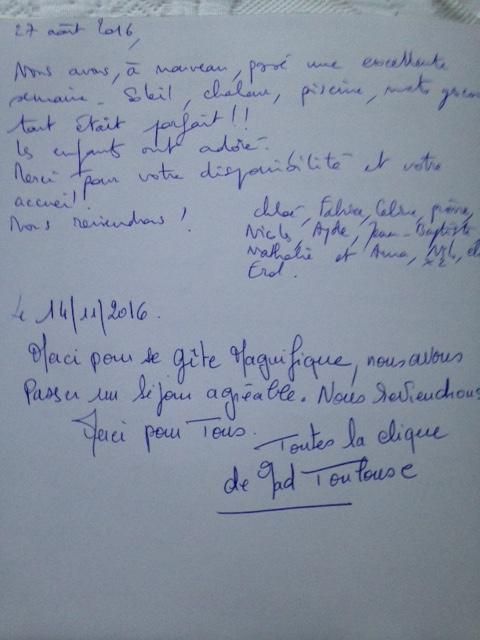 27 août 2016,
Nous avons, à nouveau, passé une excellente
semaine. Soleil, chaleur, piscine, mets
tout était parfait!!
Les enfants ont adoré.
Merci pour votre disponibilité et votre
accueil!!
Nous reviendrons!
Chloé, Fabrice, Céline,
Nicols, Ayde, Jean-Baptiste
Nathalie et Anna,
Erol.
Le 14/11/2016.
Merci pour se gîte Magnifique, nous avons
Passer un séjour agréable. Nous Reviendrons
Merci pour Tous.
Toutes la clique
de Gad Toulouse